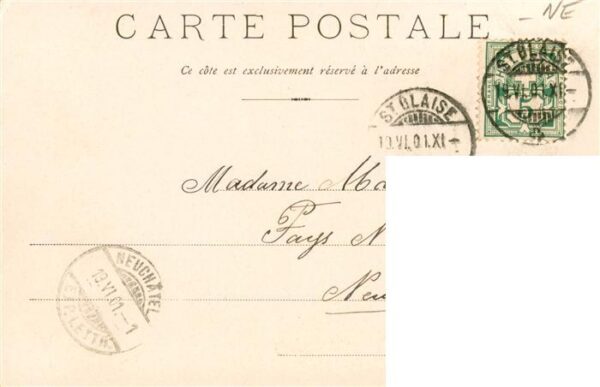 NE
CARTE POSTALE
Ce côte est exclusivement réservé à l'adresse
ST BLAISE
19.VI.01.XI
ST BLAISE
19.VI.01.XI
Madame
Pays N
Neu
NEUCHÂTEL
19.VI.01.–1